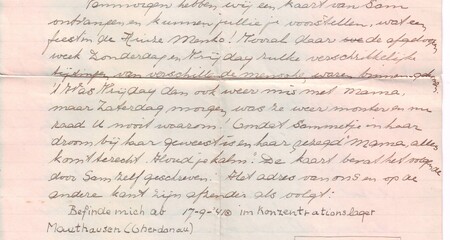 Vanmorgen hebben wij een kaart van Sam
ontvangen en kunnen jullie je voorstellen, wat een
feest in de Huize Manko! Vooral daar we de afgelopen
week Zonderdag en Vrijdag zulke verschrikkelijke
tijdingen van verschillende menschen waren binnen
Was Vrijdag dan ook weer mis met Mama,
maar Zaterdag morgen was ze weer monter en nu
raad U nooit waarom! Omdat Sammetje in haar
droom bij haar geweest is en haar gezegd "Mama, alles
komt terecht. Houd je kalm! De kaart bevat het volgende
door Sam zelf geschreven. Het adres van ons en op de
andere kant zijn afzender als volgt:
Befinde mich ab 17-9-'41 im Konzentrationslager
Mauthausen (Oberdonau)